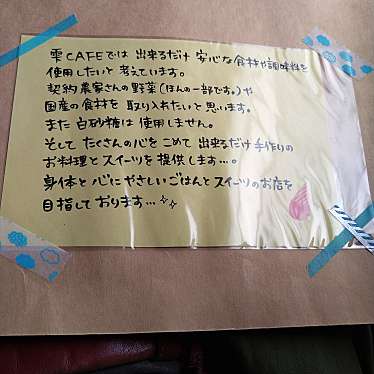 雫CAFEでは 出来るだけ 安心な食材や調味料を
使用したいと考えています。
契約農家さんの野菜(ほんの一部です。)や
国産の食材を 取り入れたいと思います。
また 白砂糖は使用しません。
そして たくさんの心をこめて 出来るだけ手作りの
お料理とスイーツを提供します…。
身体と心にやさしいごはんとスイーツのお店を
目指しております…